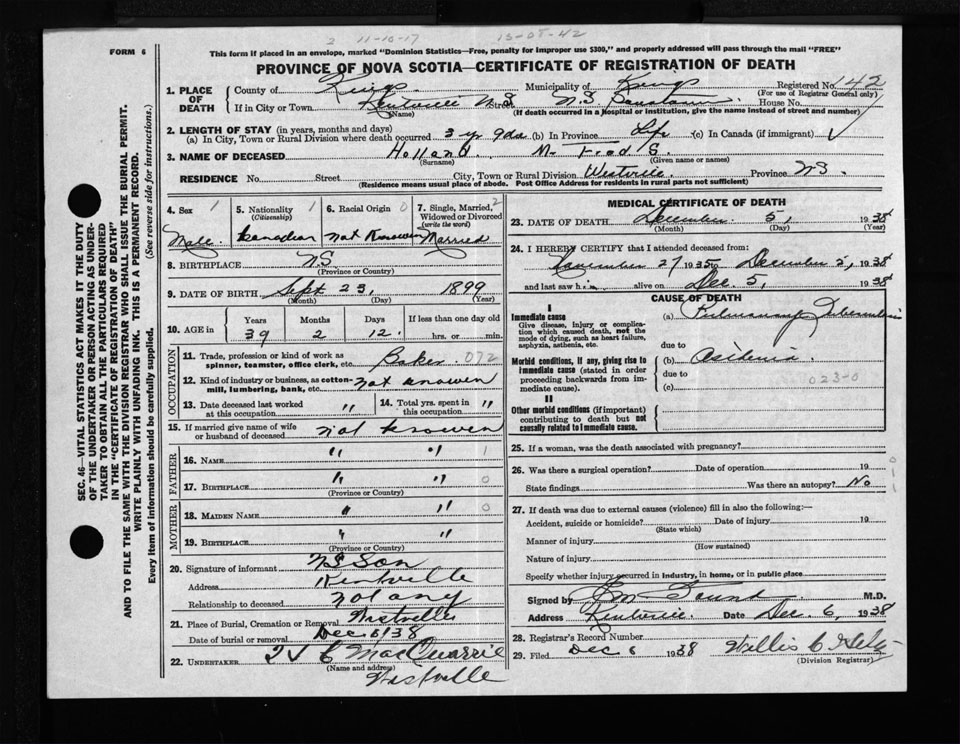 3 11-10-17 13-08-42
FORM 6
This form if placed in an envelope, marked "Dominion Statistics—Free, penalty for improper use $300," and properly addressed will pass through the mail "FREE"
PROVINCE OF NOVA SCOTIA—CERTIFICATE OF REGISTRATION OF DEATH
SEC. 46—VITAL STATISTICS ACT MAKES IT THE DUTY
OF THE UNDERTAKER OR PERSON ACTING AS UNDER-
TAKER TO OBTAIN ALL THE PARTICULARS REQUIRED
IN THE "CERTIFICATE OF REGISTRATION OF DEATH"
AND TO FILE THE SAME WITH THE DIVISION REGISTRAR WHO SHALL ISSUE THE BURIAL PERMIT.
WRITE PLAINLY WITH UNFADING INK. THIS IS A PERMANENT RECORD.
Every item of information should be carefully supplied. (See reverse side for instructions.)
1. PLACE OF DEATH County of Kings Municipality of Kings Registered No. 142
(For use of Registrar General only)
If in City or Town Kentville N.S Street N.S. House No.
(Name) (If death occurred in a hospital or institution, give the name instead of street and number)
2. LENGTH OF STAY (in years, months and days)
(a) In City, Town or Rural Division where death occurred 3 yr 9da (b) In Province Life (c) In Canada (if immigrant) ✓
3. NAME OF DECEASED Holland Fred S.
(Surname) (Given name or names)
RESIDENCE No. Street City, Town or Rural Division Westville Province N.S.
(Residence means usual place of abode. Post Office Address for residents in rural parts not sufficient)
4. Sex 1 Male.
5. Nationality 1 (Citizenship) Canadian
6. Racial Origin 0 Not Knowen
7. Single, Married, 2 Widowed or Divorced (write the word) Married
8. BIRTHPLACE N.S.
(Province or Country)
9. DATE OF BIRTH Sept 23, 1899
(Month) (Day) (Year)
10. AGE in Years Months Days If less than one day old
39 2 12. hrs. or min.
OCCUPATION
11. Trade, profession or kind of work as spinner, teamster, office clerk, etc. Baker. 072
12. Kind of industry or business, as cotton-mill, lumbering, bank, etc. not knowen
13. Date deceased last worked at this occupation "
14. Total yrs. spent in this occupation "
15. If married give name of wife or husband of deceased not knowen
FATHER
16. NAME " " 1
17. BIRTHPLACE " " 0
(Province or Country)
MOTHER
18. MAIDEN NAME " " 0
19. BIRTHPLACE " "
(Province or Country)
20. Signature of informant NS San
Address Kentville
Relationship to deceased not any
21. Place of Burial, Cremation or Removal Westville
Date of burial or removal Dec 6/38
22. UNDERTAKER C MacQuarrie
(Name and address)
Westville
MEDICAL CERTIFICATE OF DEATH
23. DATE OF DEATH December 5, 1938
(Month) (Day) (Year)
24. I HEREBY CERTIFY that I attended deceased from:
November 27 1935 to December 5, 1938
and last saw h alive on Dec. 5, 1938
CAUSE OF DEATH
I
Immediate cause
Give disease, injury or complication which caused death, not the mode of dying, such as heart failure, asphyxia, asthenia, etc.
(a) Pulmonary Tuberculosis
due to
Morbid conditions, if any, giving rise to immediate cause (stated in order proceeding backwards from immediate cause)
(b)
due to
(c) 023-0
II
Other morbid conditions (if important) contributing to death but not causally related to immediate cause.
25. If a woman, was the death associated with pregnancy?
26. Was there a surgical operation? Date of operation 19
State findings Was there an autopsy? No
27. If death was due to external causes (violence) fill in also the following:—
Accident, suicide or homicide? Date of injury 19
(State which)
Manner of injury
(How sustained)
Nature of injury
Specify whether injury occurred in industry, in home, or in public place
Signed by M.D.
Address Kentville Date Dec. 6, 1938
28. Registrar's Record Number
29. Filed Dec 6 1938 Willis C
(Division Registrar)